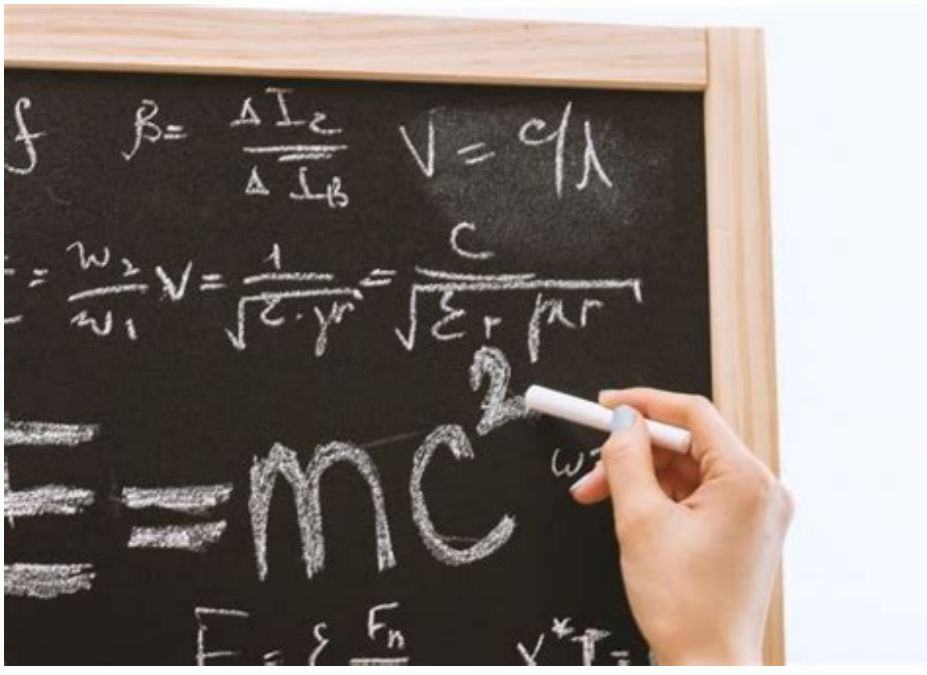 f β= ΔI_c/ΔI_B V = c/λ
= w_2/w_1 V = 1/√ε·μ = c/√ε_r μr
E = mc²
w=
F = ξ F_n